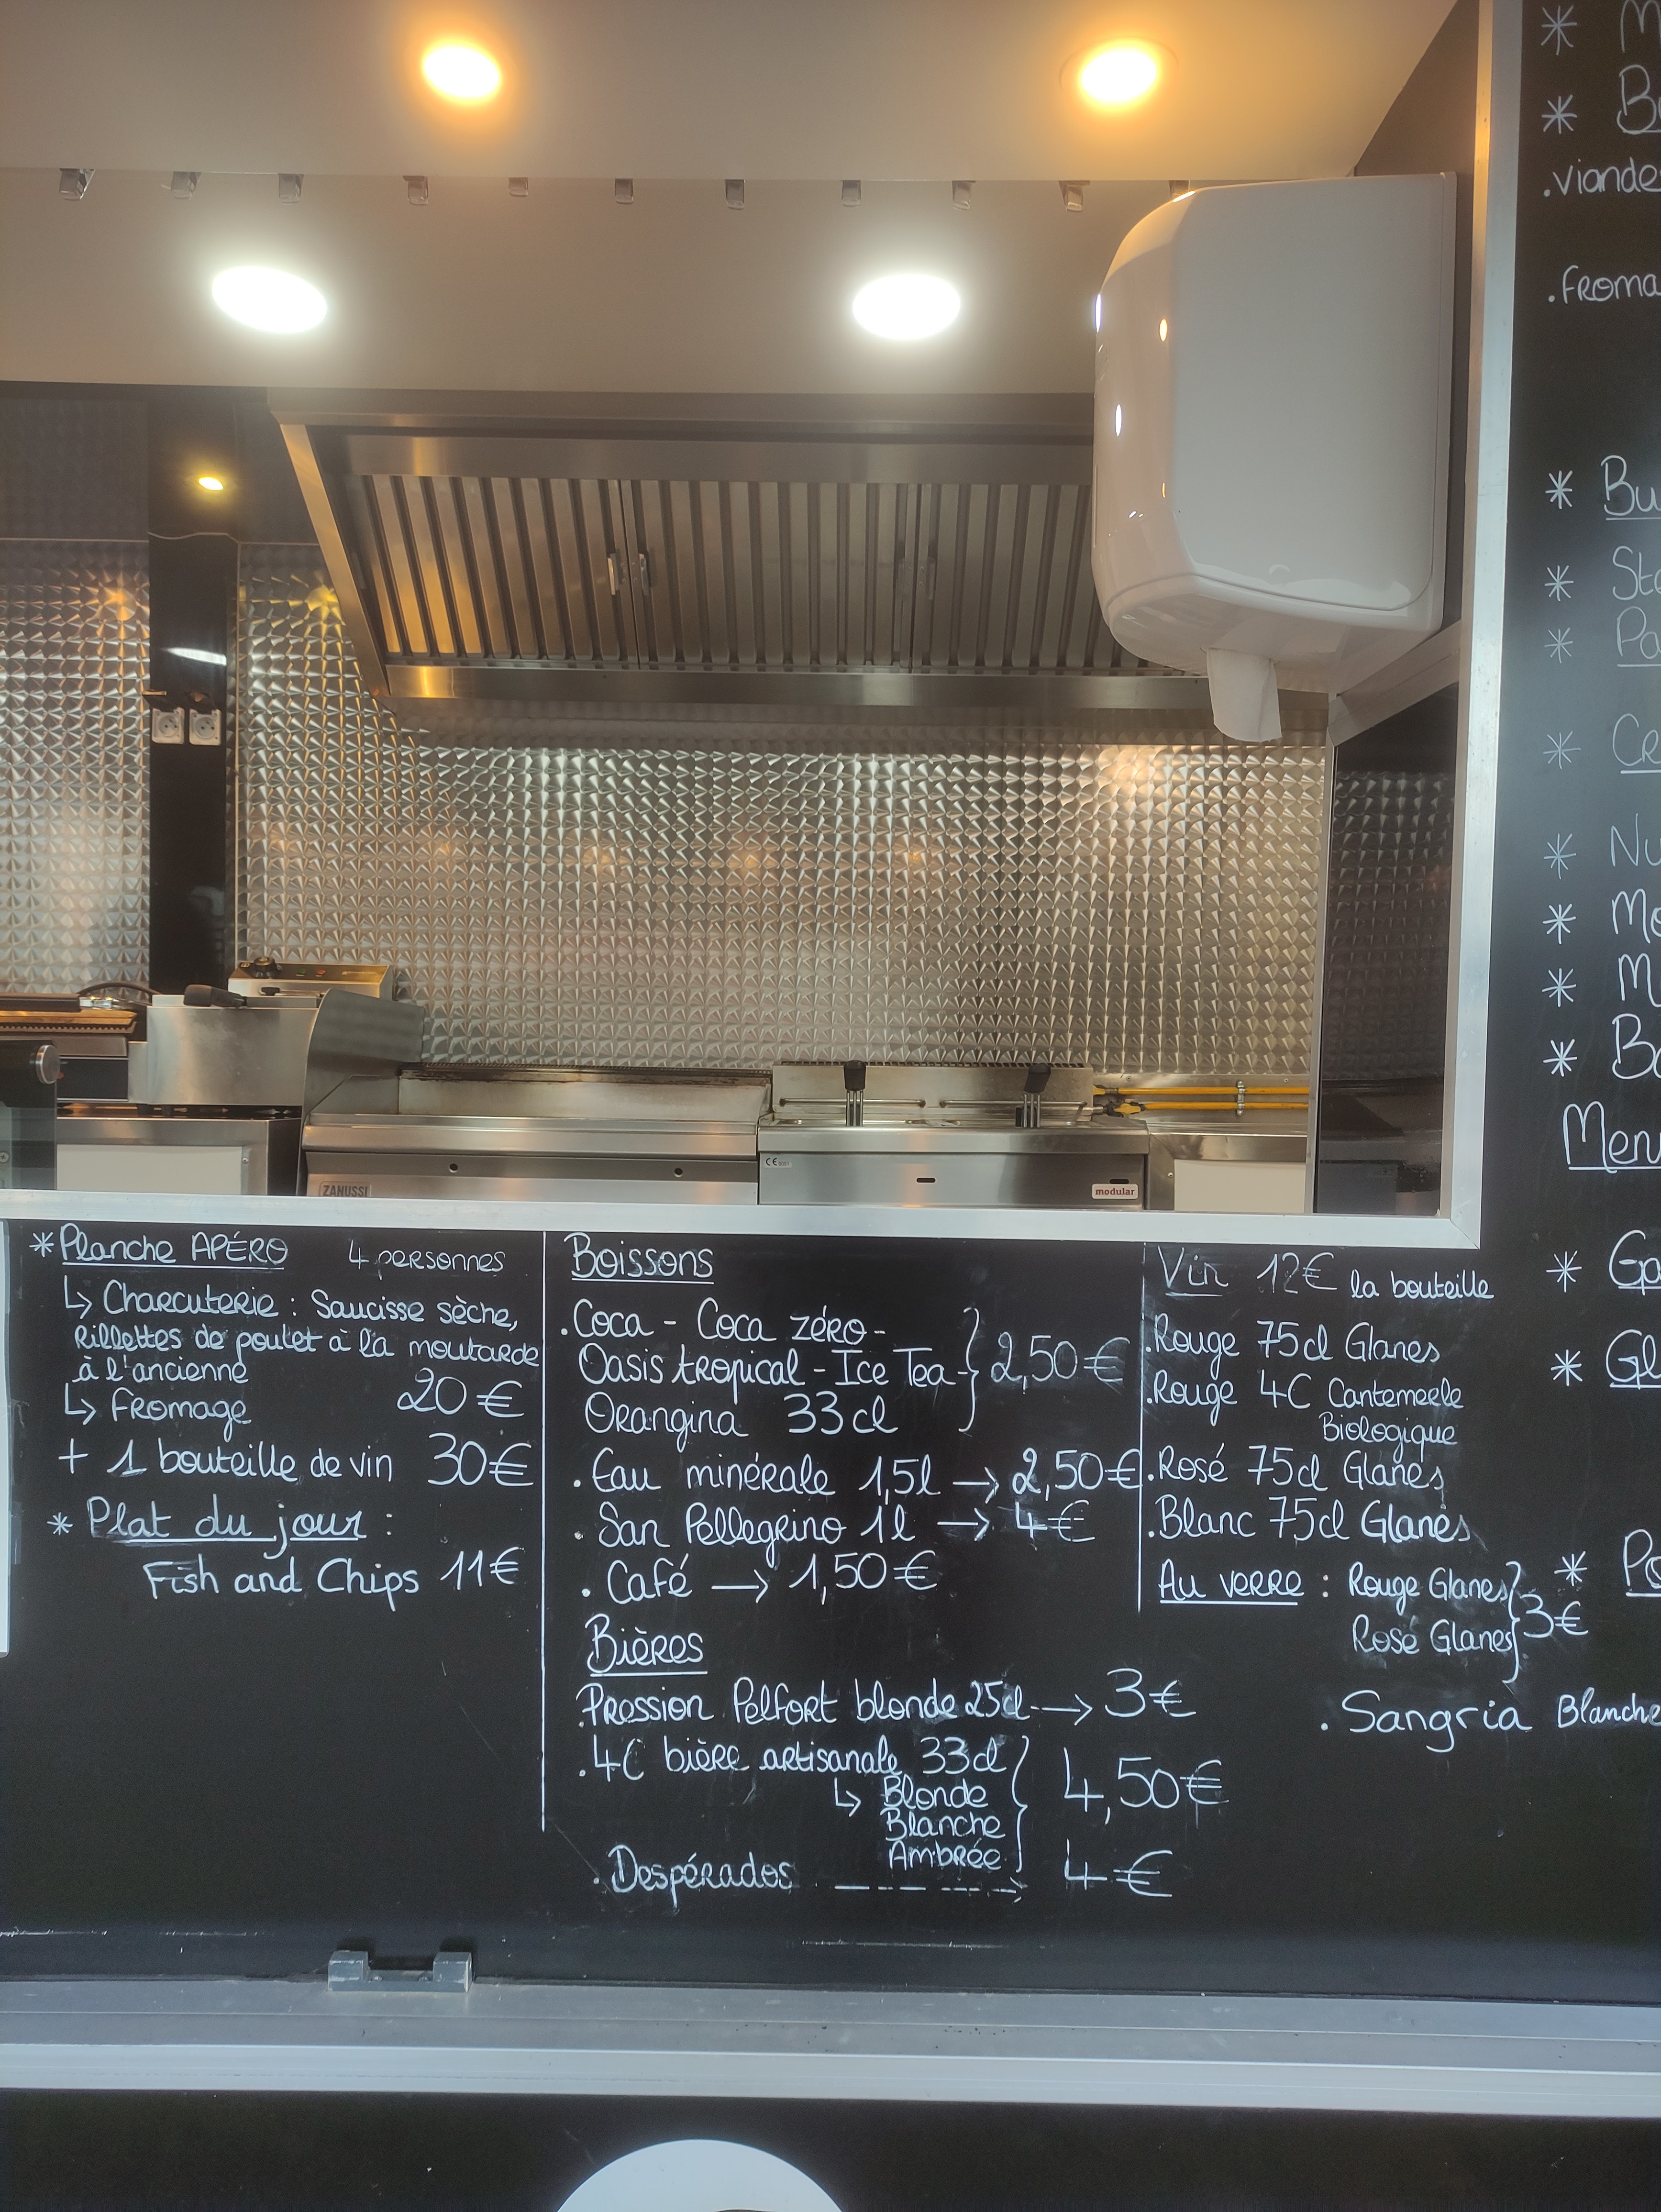 ZANUSSI
CE
modular
* Planche APÉRO 4 personnes
↳ Charcuterie : Saucisse sèche,
Rillettes de poulet à la moutarde
à l'ancienne
↳ Fromage 20 €
+ 1 bouteille de vin 30€
* Plat du jour :
Fish and Chips 11€
Boissons
. Coca - Coca zéro -
Oasis tropical - Ice Tea - } 2,50€
Orangina 33cl
. Eau minérale 1,5l → 2,50€
. San Pellegrino 1l → 4€
. Café → 1,50€
Bières
. Pression Pelfort blonde 25cl → 3€
. 4C bière artisanale 33cl } 4,50€
↳ Blonde
Blanche
Ambrée
. Despérados ----> 4€
Vin 12€ la bouteille
. Rouge 75cl Glanes
. Rouge 4C Cantemerle
Biologique
. Rosé 75cl Glanes
. Blanc 75cl Glanes
Au verre : Rouge Glanes } 3€
Rosé Glanes
. Sangria Blanche
* M
* B
. viande
. Froma
* Bu
* Ste
* Pa
* Cr
* Nu
* Mo
* M
* Bo
Menu
* Ga
* Gl
* Po